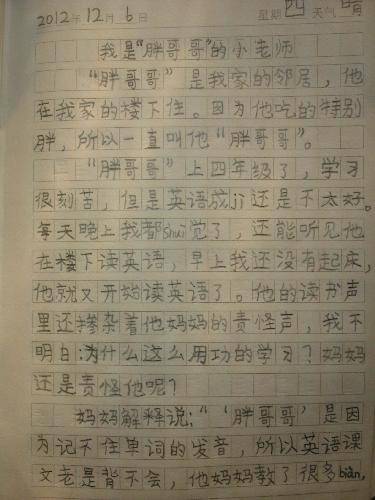 2012年12月6日 星期四 天气晴
我是“胖哥哥”的小老师
“胖哥哥”是我家的邻居，他
在我家的楼下住。因为他吃的特别
胖，所以一直叫他“胖哥哥”。
“胖哥哥”上四年级了，学习
很刻苦，但是英语成jì还是不太好。
每天晚上我都shuì觉了，还能听见他
在楼下读英语，早上我还没有起床，
他就又开始读英语了。他的读书声
里还掺杂着他妈妈的责怪声，我不
明白：为什么这么用功的学习？妈妈
还是责怪他呢？
妈妈解释说：“‘胖哥哥’是因
为记不住单词的发音，所以英语课
文老是背不会，他妈妈教了很多biàn，